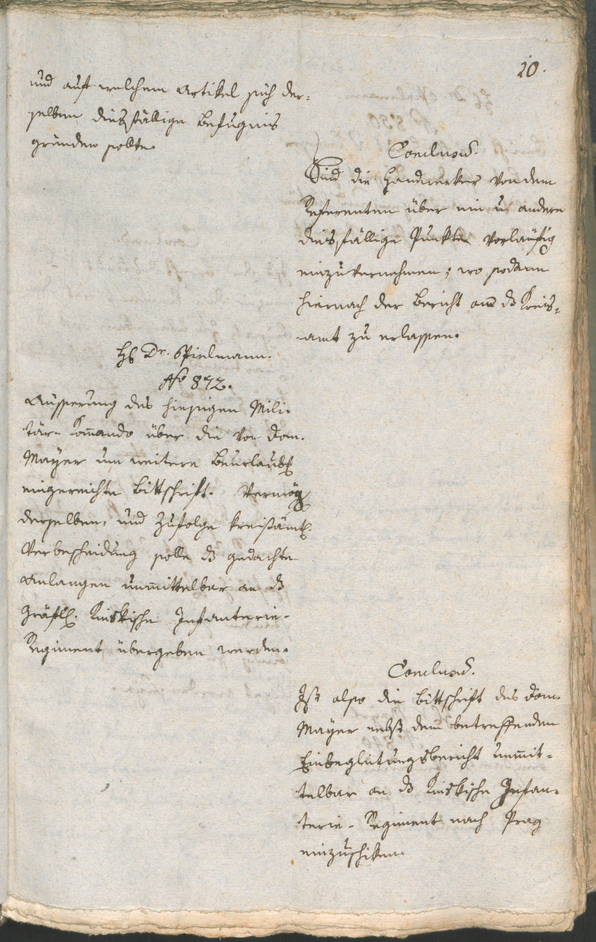 20.
und auf welchem Artikel sich der-
selben diesfällige Befugnis
gründen sollte.
Conclusū.
Sind die Handwerker von dem
Referenten über ein u andere
diesfällige Punkte vorläufig
einzuvernehmen; wo sodann
hiernach der Bericht an ds Kreis-
amt zu erlassen.
H Dr. Spielmann.
No 872.
Äusserung des hiesigen Mili-
tär-Komando über die von Dom.
Mayer um weitere Beurlaub
eingereichte Bittschrift. Vermög
derselben, und zufolge kreisämtl.
Verbescheidung solle ds gedachte
Anlangen unmittelbar an ds
Gräfl. Kinskische Infanterie-
Regiment übergeben werden.
Conclusū.
Ist also die Bittschrift des Dom.
Mayer nebst dem betreffenden
Einbegleitungsbericht unmit-
telbar an ds Kinskische Infan-
terie-Regiment nach Prag
einzuschiken.